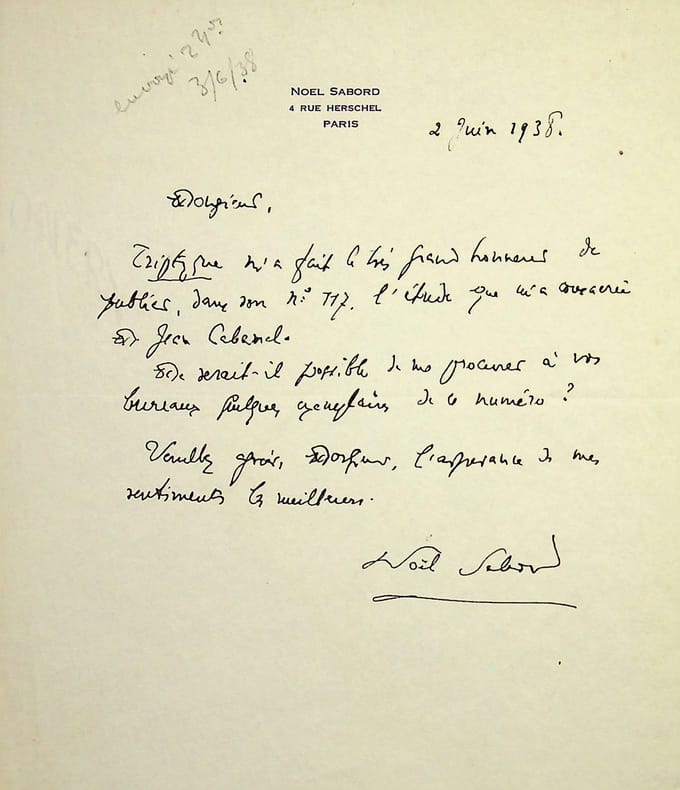 envoyé 2 nos
3/6/38
NOEL SABORD
4 RUE HERSCHEL
PARIS
2 Juin 1938.
Monsieur,
Triptyque m'a fait le très grand honneur de
publier, dans son n° 117, l'étude que m'a consacrée
M. Jean Cabanel.
Me serait-il possible de me procurer à vos
bureaux quelques exemplaires de ce numéro ?
Veuillez agréer, Monsieur, l'assurance de mes
sentiments les meilleurs.
Noël Sabord